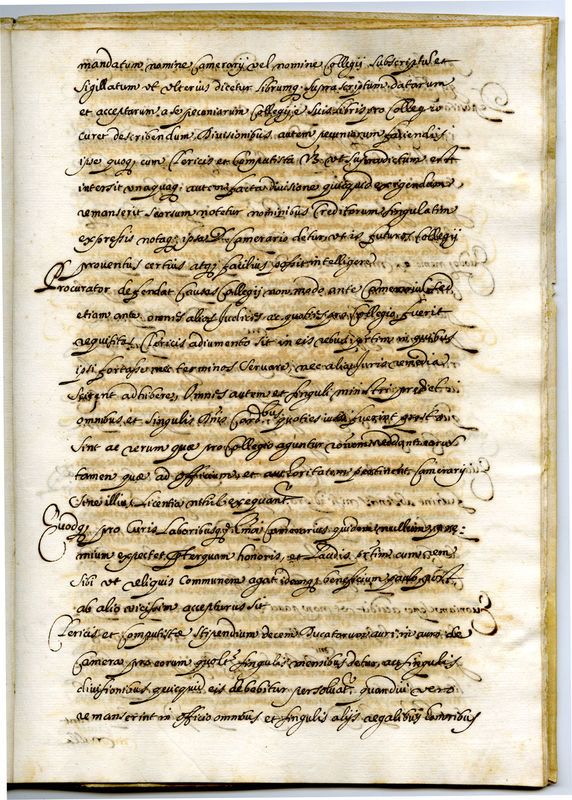 mandatum nomine Camerarij vel nomine Collegij subscriptu et
sigillatum ut ulterius dicetur librumq; suprascriptum datarum
et acceptarum a se pecuniarum Collegij e suis libris pro Collegio
curet describendum Divisionibus autem pecuniarum faciendis
ipse quoq; cum Clericis et Computista ut supradictum est
intersit unaquaq; autem facta divisione quicquid exigendum
remanserit seorsum notetur nominibus Creditorum singulatim
expressis notaq; ipsa Camerario detur ut is futuros Collegij
proventus certius atq; facilius possit intelligere
Procurator defendat Causas Collegij non modo ante Camerarium sed
etiam ante omnes alios Judices ac quoties pro Collegio fuerit
requisitus Clericis adiumento sit in eis in quibus
ipsi fortasse nec terminos servare, nec alia Juris remedia
scirent adhibere, Omnes autem et singuli ministri predicti
omnibus et singulis Dnis Cardbus quoties iussi fuerint presto
sint ac rerum quae pro Collegio aguntur rationem reddant
tamen quae ad officium, et auctoritatem pertinent Camerarij
sine illius Licentia nihil exequantr
Quodq; pro Curis Laboribusq; Camerarius quidem nullum prae-
mium expectet Pterquam honoris, et Laudis cum rem
sibi ut reliquis Communem agat idemq; beneficium
ab alio vicissim accepturus sit
Clericis et Computistae stipendium decem Ducatorum auri in auro de
Camera pro eorum singulis mensibus detur, ac singulis
divisionibus quicquid eis debebitur persolvatr quandiu vero
remanserint in officio omnibus et singulis alijs aequalibus honoribus